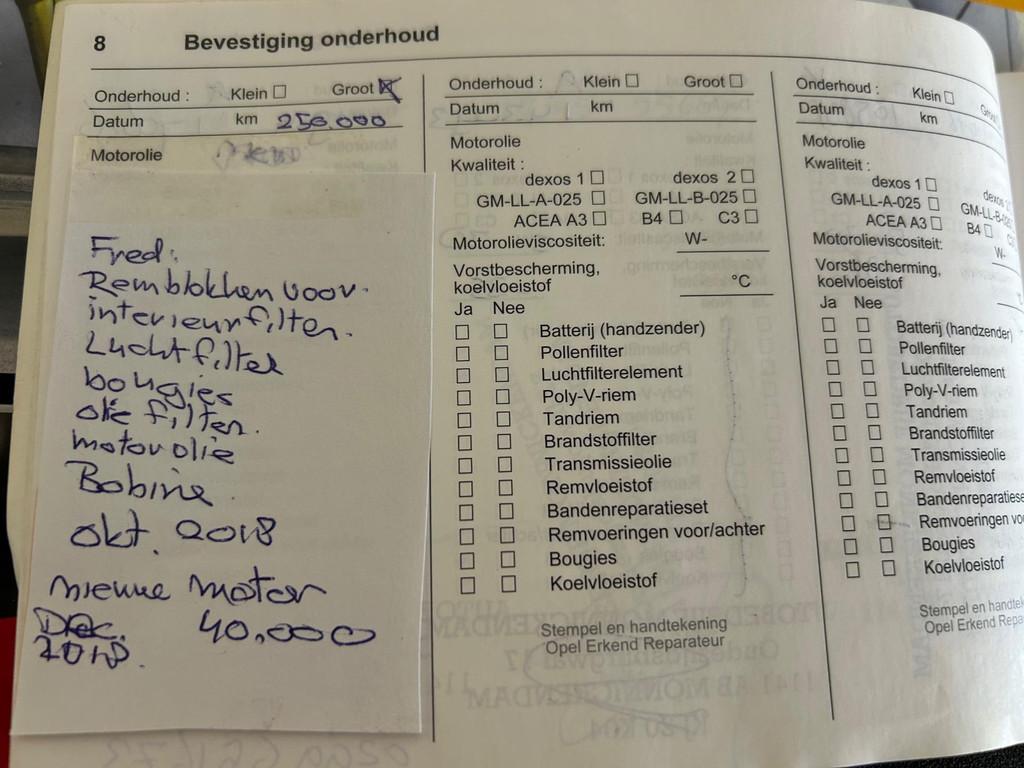 8 Bevestiging onderhoud
Onderhoud : Klein Groot
Datum km 250.000
Motorolie
Fred:
Remblokken voor.
interieurfilter.
Luchtfilter
bougies
olie filter.
motorolie
Bobine
okt. 2018
nieuwe motor
Dec. 40.000
2018.
Onderhoud : Klein Groot
Datum km
Motorolie
Kwaliteit :
dexos 1 dexos 2
GM-LL-A-025 GM-LL-B-025
ACEA A3 B4 C3
Motorolieviscositeit: W-
Vorstbescherming,
koelvloeistof °C
Ja Nee
Batterij (handzender)
Pollenfilter
Luchtfilterelement
Poly-V-riem
Tandriem
Brandstoffilter
Transmissieolie
Remvloeistof
Bandenreparatieset
Remvoeringen voor/achter
Bougies
Koelvloeistof
Stempel en handtekening
Opel Erkend Reparateur
Onderhoud : Klein
Datum km
Motorolie
Kwaliteit :
dexos 1
GM-LL-A-025
ACEA A3 B4
Motorolieviscositeit: W-
Vorstbescherming,
koelvloeistof
Ja Nee
Batterij (handzender)
Pollenfilter
Luchtfilterelement
Poly-V-riem
Tandriem
Brandstoffilter
Transmissieolie
Remvloeistof
Bandenreparatiese
Remvoeringen vo
Bougies
Koelvloeistof
Stempel en handteke
Opel Erkend Repara